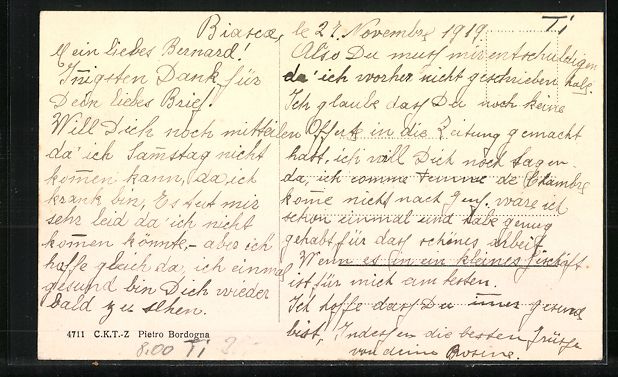 Biasca, le 27. Novembre 1919.
Ti
Mein liebes Bernard!
Innigsten Dank für
Dein liebes Brief!
Will Dich noch mitteilen
da' ich Samstag nicht
kommen kann, da ich
krank bin, Es tut mir
sehr leid da' ich nicht
kommen könnte, – aber ich
hoffe gleich da, ich einmal
gesund bin Dich wieder
bald zu sehen.
Also Du muss mir entschuldigen
da' ich vorher nicht geschrieben habe.
Ich glaube dass Du noch keine
Offerte in die Zeitung gemacht
hast, ich will Dich noch sagen
da, ich comme femme de Chambre
komme nicht nach
schon einmal und habe genug
gehabt für das schönes Arbeit
Wenn es in ein kleines Geschäft
ist für mich am besten.
Ich hoffe dass Du immer gesund
bist, Indessen die besten Grüsse
von deine Rosine.
4711 C.K.T.-Z Pietro Bordogna
8.00 Ti